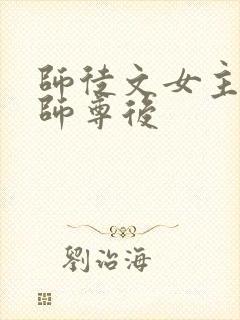 師徒文女主
師尊後
劉治海